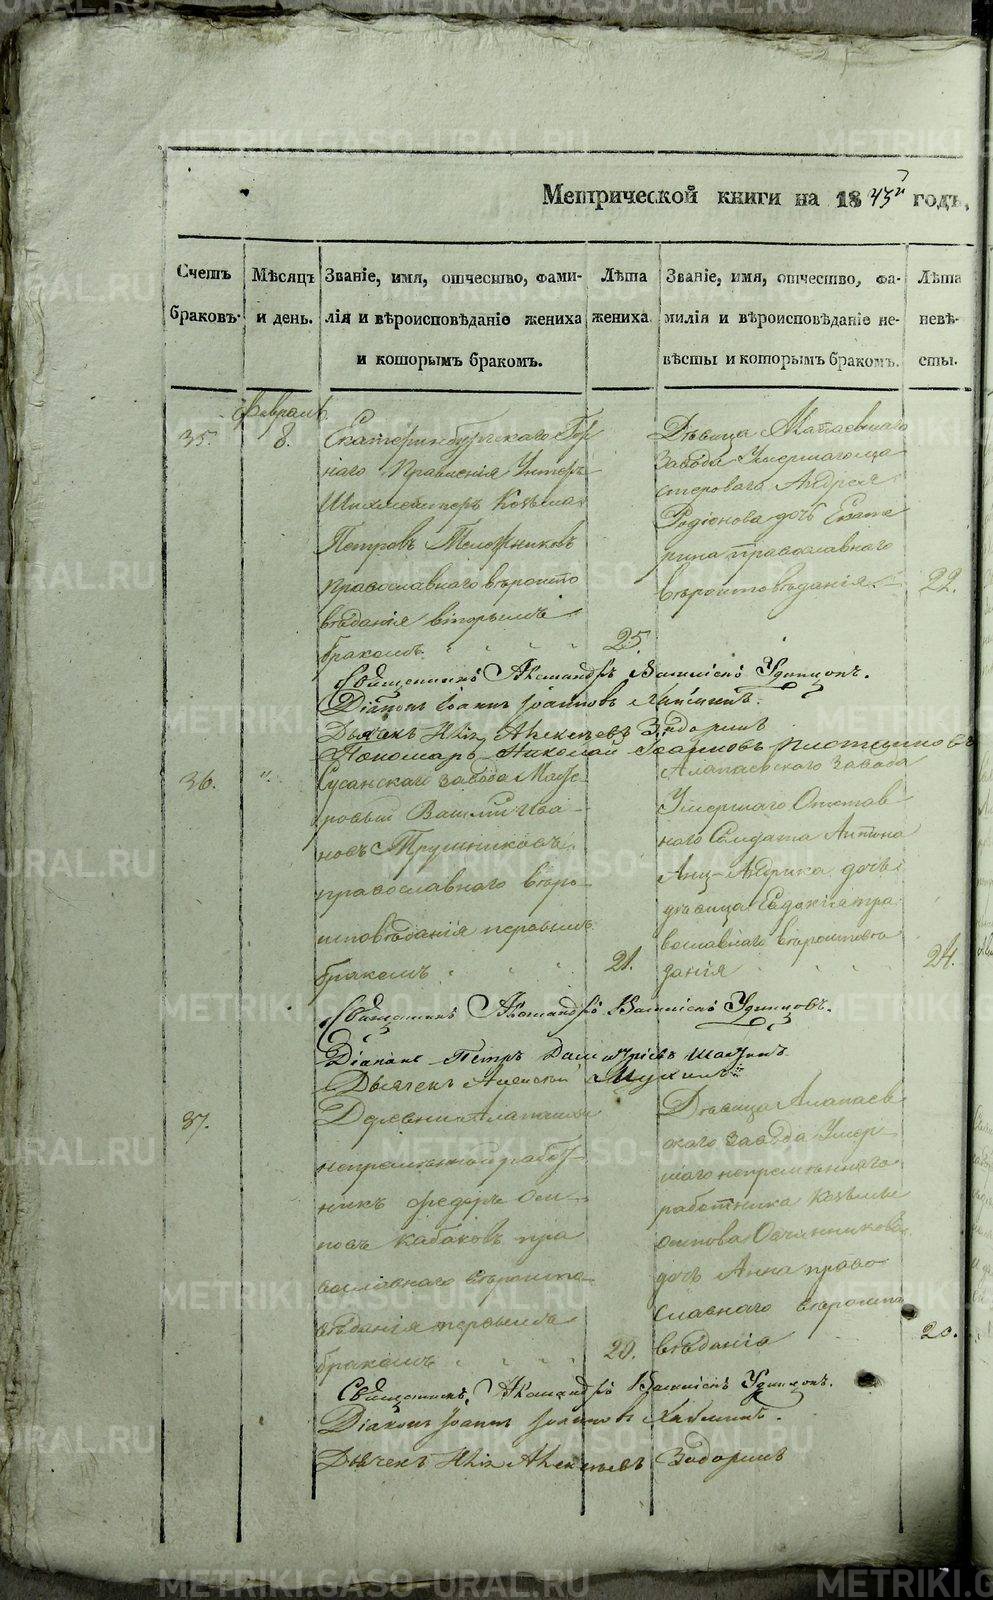 Метрической книги на 1843й годъ,
Счетъ браковъ.
Мѣсяцъ и день.
Званіе, имя, отчество, фами-
лія и вѣроисповѣданіе жениха
и которымъ бракомъ.
Лѣта жениха
Званіе, имя, отчество, фа-
милія и вѣроисповѣданіе не-
вѣсты и которымъ бракомъ.
Лѣта невѣ-
сты.
Февраль
35. 8.
Екатеринбургскаго Гор
наго Правленія Унтеръ
Шихмейстеръ Козьма
Петровъ
православнаго вѣроиспо
вѣданія вторымъ
бракомъ 25.
Дѣвица Алапаевскаго
завода Умершаго ма
стероваго Андрея
Родіонова дочь Екате
рина православнаго
вѣроисповѣданія 22.
Священникъ Александръ Удинцовъ.
Діаконъ Іоаннъ Іоанновъ
Дьячекъ Алексѣевъ
Пономарь Николай Іоанновъ
36. "
Сусанскаго завода Масте
ровый Василій Ива
новъ Трушниковъ
православнаго вѣро
исповѣданія первымъ
бракомъ 21.
Алапаевскаго завода
Умершаго Отстав
наго Солдата Антона
дочь
дѣвица Евдокія пра
вославнаго вѣроисповѣ
данія 24.
Священникъ Александръ Удинцовъ.
Діаконъ Петръ
Дьячекъ Алексѣй
37.
Деревни Алапаихи
непремѣнный работ
никъ Федоръ Оси
повъ Кабаковъ пра
вославнаго вѣроиспо
вѣданія первымъ
бракомъ 20.
Дѣвица Алапаев
скаго завода Умер
шаго непремѣннаго
работника Козьмы
Осипова Овчинникова
дочь Анна право
славнаго вѣроиспо
вѣданія 20.
Священникъ Александръ Удинцовъ.
Діаконъ Іоаннъ Іоанновъ
Дьячекъ Алексѣевъ
METRIKI.GASO-URAL.RU